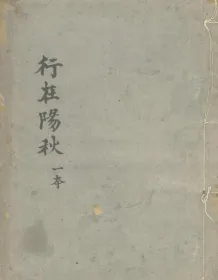 行在陽秋
一本